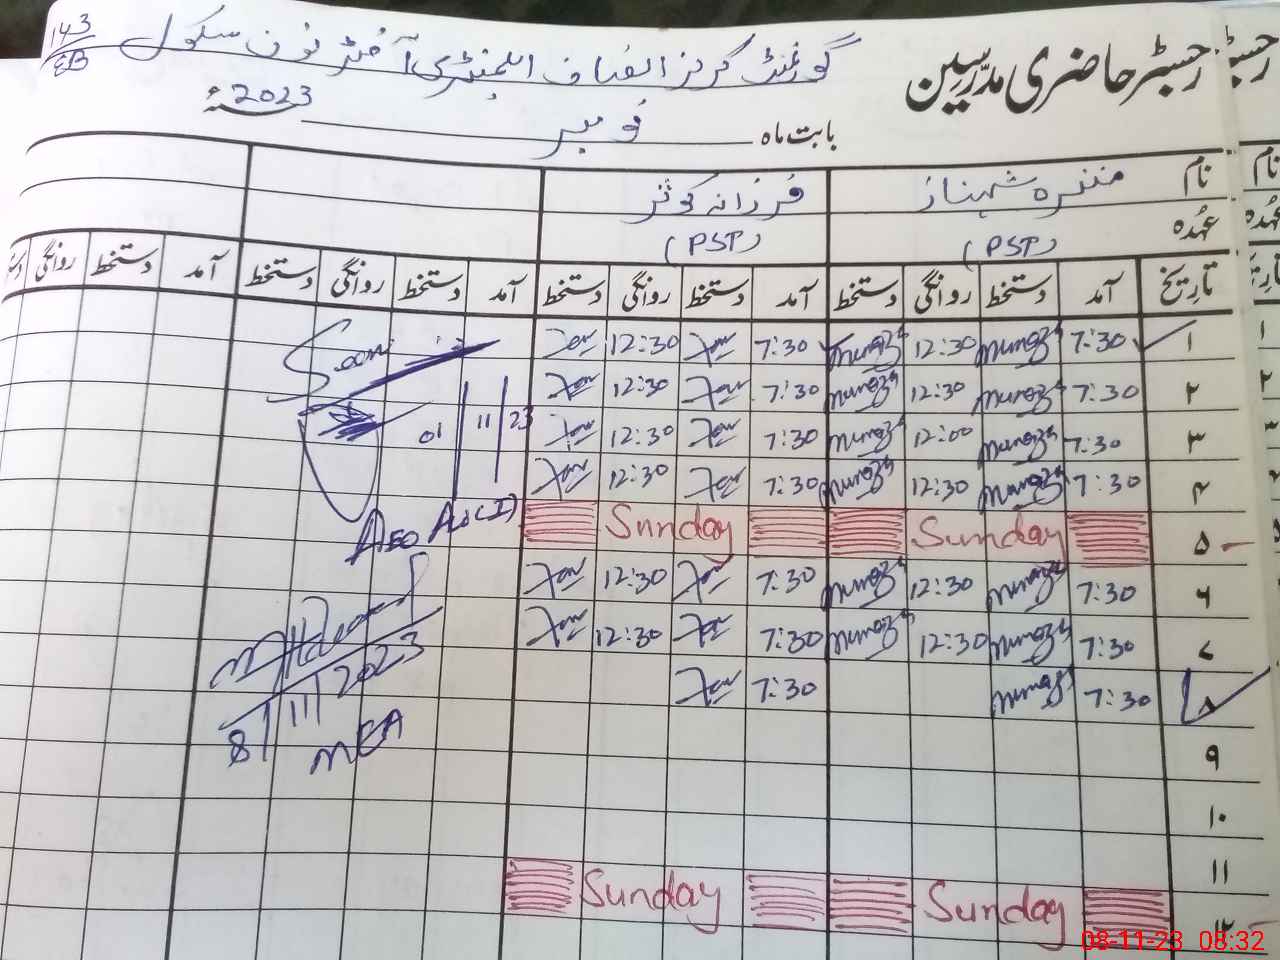 رجسٹر حاضری مدرسین
گورنمنٹ گرلز انصاف ایلیمنٹری آفٹر نون سکول 143/EB
بابت ماہ نومبر 2023ء
نام منزہ شہناز فرزانہ کوثر
عہدہ (PST) (PST)
تاریخ آمد دستخط روانگی دستخط آمد دستخط روانگی دستخط آمد دستخط روانگی دستخط آمد دستخط روانگی دستخط
۱ 7:30 Munaza 12:30 Munaza 7:30 12:30
۲ 7:30 Munaza 12:30 Munaza 7:30 12:30
۳ 7:30 Munaza 12:00 Munaza 7:30 12:30
۴ 7:30 Munaza 12:30 Munaza 7:30 12:30
۵ Sunday Sunday
۶ 7:30 Munaza 12:30 Munaza 7:30 12:30
۷ 7:30 Munaza 12:30 Munaza 7:30 12:30
۸ 7:30 Munaza 7:30
۹
۱۰
۱۱
۱۲ Sunday Sunday
01/11/23
AEO
8/11/2023
MEA
08-11-23 08:32